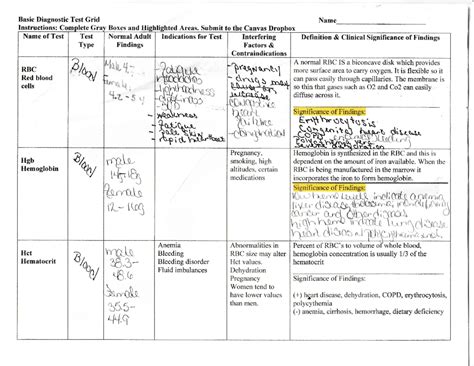 Basic Diagnostic Test Grid
Name
Instructions: Complete Gray Boxes and Highlighted Areas. Submit to the Canvas Dropbox
Name of Test
Test Type
Normal Adult Findings
Indications for Test
Interfering Factors & Contraindications
Definition & Clinical Significance of Findings
RBC
Red blood
cells
Blood
Male 4-
Female
4.2-5.4
Fatigue
headaches
lightheadness
dizziness
weakness
fatigue
pale skin
rapid heart beat
pregnancy
drugs
dehydration
A normal RBC IS a biconcave disk which provides
more surface area to carry oxygen. It is flexible so it
can pass easily through capillaries. The membrane is
so thin that gases such as O2 and Co2 can easily
diffuse across it.
Significance of Findings:
Erythrocytosis
Congenital heart disease
COPD
severe dehydration
Hgb
Hemoglobin
Blood
male
14-18g
Female
12-16g
Pregnancy,
smoking, high
altitudes, certain
medications
Hemoglobin is synthesized in the RBC and this is
dependent on the amount of iron available. When the
RBC is being manufactured in the marrow it
incorporates the iron to form hemoglobin.
Significance of Findings:
Low heme levels indicate anemia
liver disease
cancer and other
high heme indicate lung disease
heart disease
Hct
Hematocrit
Blood
male
38.3-
48.6
Female
35.5-
44.9
Anemia
Bleeding
Bleeding disorder
Fluid imbalances
Abnormalities in
RBC size may alter
Hct values.
Dehydration
Pregnancy
Women tend to
have lower values
than men.
Percent of RBC's to volume of whole blood,
hemoglobin concentration is usually 1/3 of the
hematocrit
Significance of Findings:
(+) heart disease, dehydration, COPD, erythrocytosis,
polycythemia
(-) anemia, cirrhosis, hemorrhage, dietary deficiency